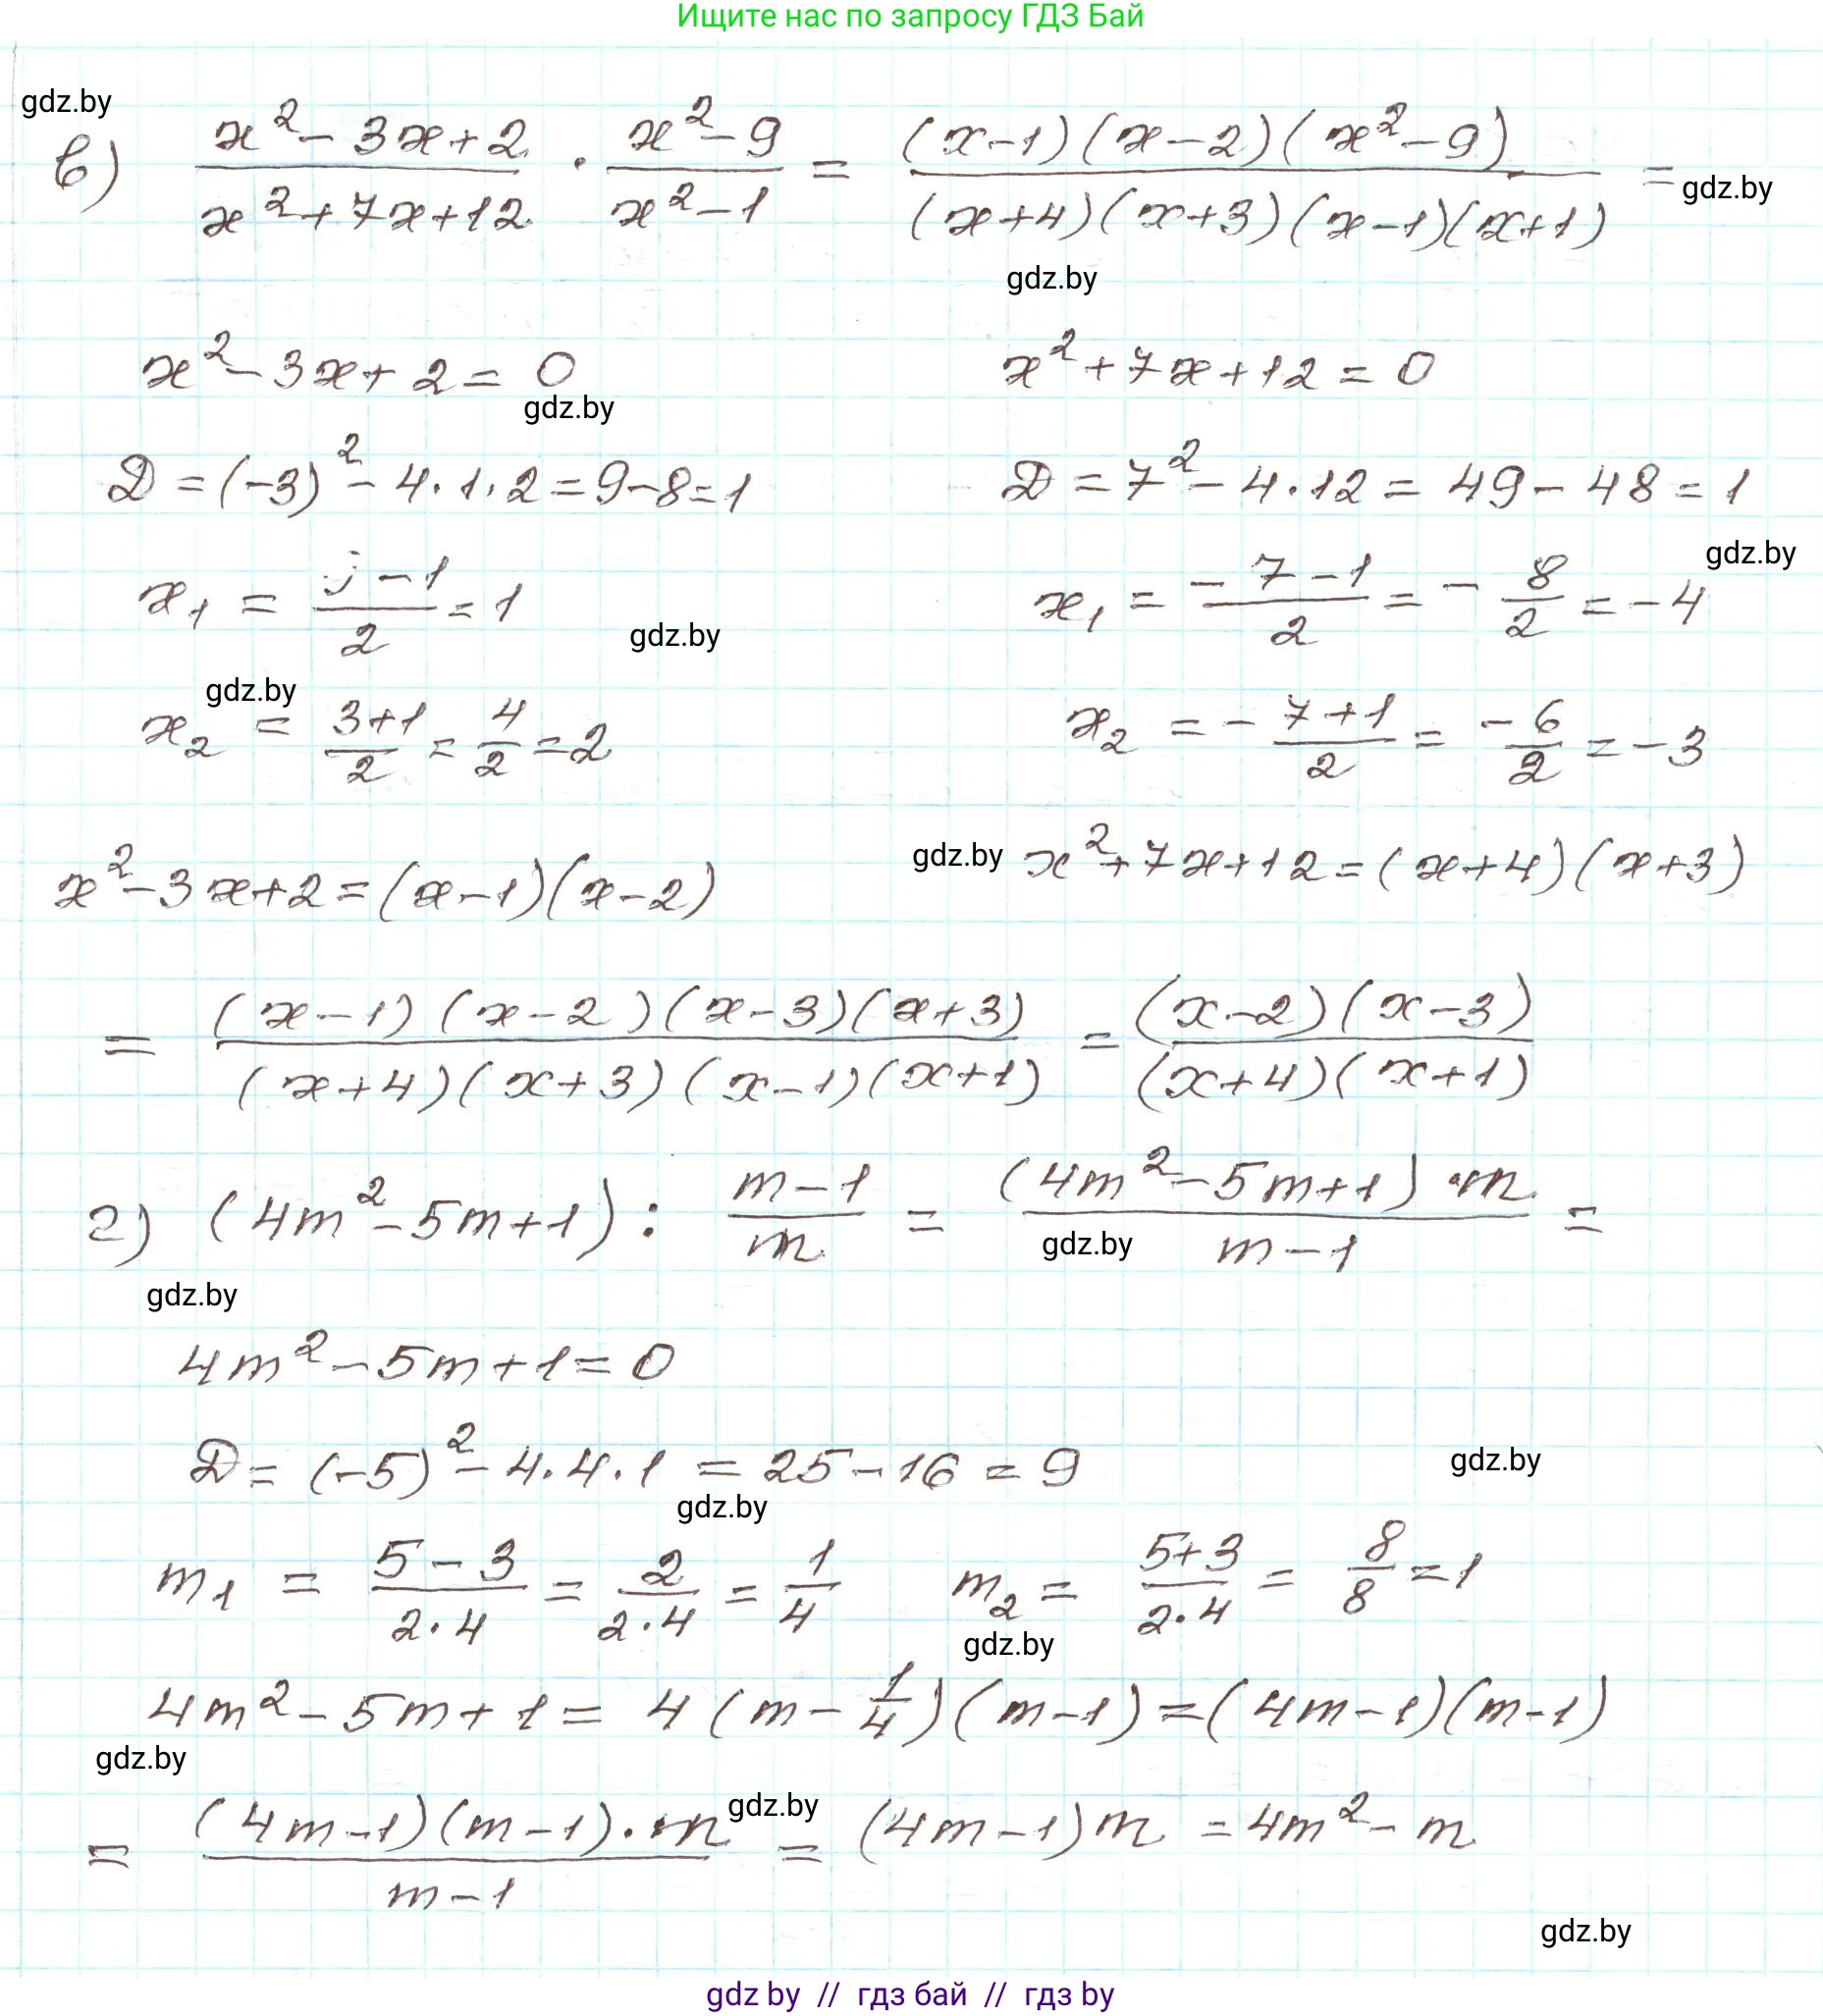 Ищите нас по запросу ГДЗ Бай
gdz.by
в) (x² - 3x + 2)/(x² + 7x + 12) · (x² - 9)/(x² - 1) = ((x - 1)(x - 2)(x² - 9))/((x + 4)(x + 3)(x - 1)(x + 1)) =
gdz.by
gdz.by
x² - 3x + 2 = 0 x² + 7x + 12 = 0
gdz.by
D = (-3)² - 4 · 1 · 2 = 9 - 8 = 1 D = 7² - 4 · 12 = 49 - 48 = 1
gdz.by
x₁ = (3 - 1)/2 = 1 x₁ = (-7 - 1)/2 = - 8/2 = -4
gdz.by
gdz.by
x₂ = (3 + 1)/2 = 4/2 = 2 x₂ = - (7 + 1)/2 = -6/2 = -3
x² - 3x + 2 = (x - 1)(x - 2) gdz.by x² + 7x + 12 = (x + 4)(x + 3)
= ((x - 1)(x - 2)(x - 3)(x + 3))/((x + 4)(x + 3)(x - 1)(x + 1)) = ((x - 2)(x - 3))/((x + 4)(x + 1))
г) (4m² - 5m + 1) : (m - 1)/m = ((4m² - 5m + 1) · m)/(m - 1) =
gdz.by
gdz.by
4m² - 5m + 1 = 0
D = (-5)² - 4 · 4 · 1 = 25 - 16 = 9 gdz.by
gdz.by
m₁ = (5 - 3)/(2 · 4) = 2/(2 · 4) = 1/4 m₂ = (5 + 3)/(2 · 4) = 8/8 = 1
gdz.by
4m² - 5m + 1 = 4(m - 1/4)(m - 1) = (4m - 1)(m - 1)
gdz.by
= ((4m - 1)(m - 1) · m)/(m - 1) gdz.by = (4m - 1)m = 4m² - m
gdz.by
gdz by // гдз бай // гдз by